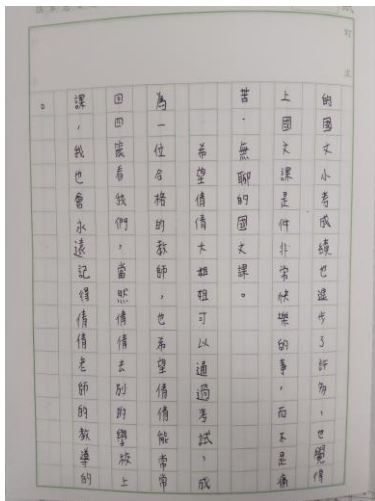 的國文小考成績也進步了許多，也覺得
上國文課是件非常快樂的事，而不是痛
苦、無聊的國文課。
希望倩倩大姐姐可以通過考試，成
為一位合格的教師，也希望倩倩能常常
回四晨看我們，當然倩倩去別的學校上
課，我也會永遠記得倩倩老師的教導的
。